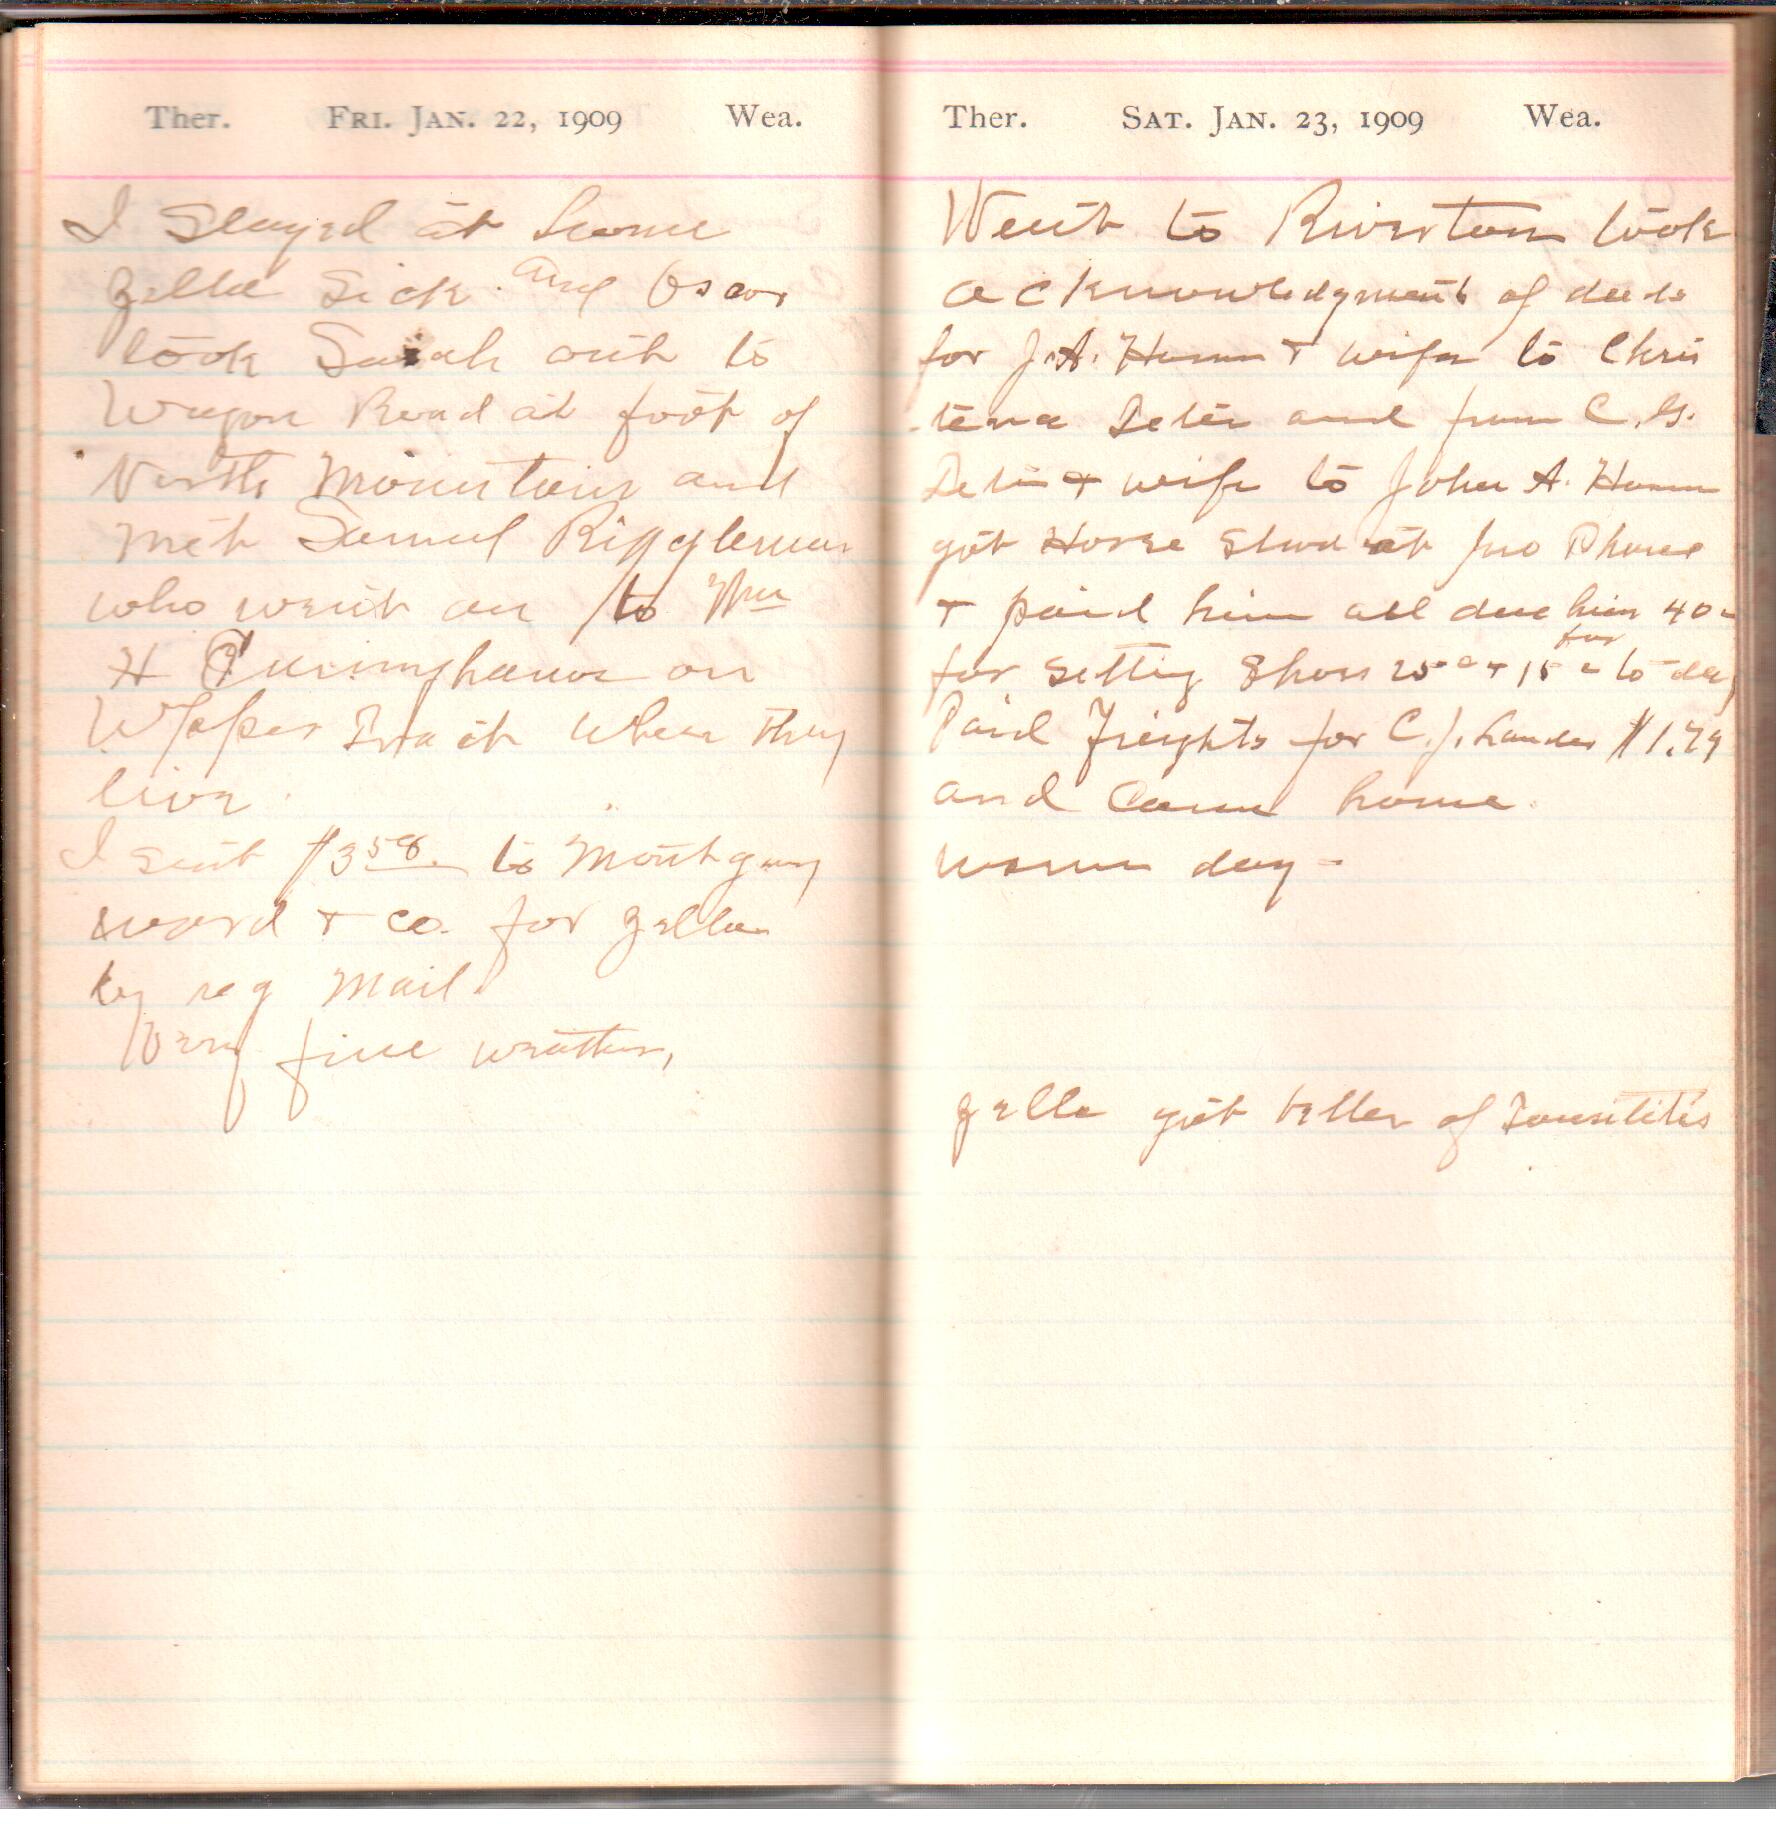 Ther. FRI. JAN. 22, 1909 Wea.
I Stayed at home
Zella Sick. and Oscar
took Sarah out to
Wagon Road at foot of
North Mountain and
met Samuel Riggleman
who went on to Wm
H Cuninghams on
Upper Tract where they
live.
I sent $3 58 to Montgmy
ward + co. for Zella
by reg Mail.
Very fine weather,
Ther. SAT. JAN. 23, 1909 Wea.
Went to Riverton took
acknowledgment of deeds
for J.A. + wife to Chris
tena and from C. G.
+ wife to John A.
got Horse Shod at Jno
+ paid him all due him 40c
for Setting Shoes 25c + 15c for to day
Paid Freights for C. J. $1.79
and Came home.
warm day -
Zella got better of Tonsilitis